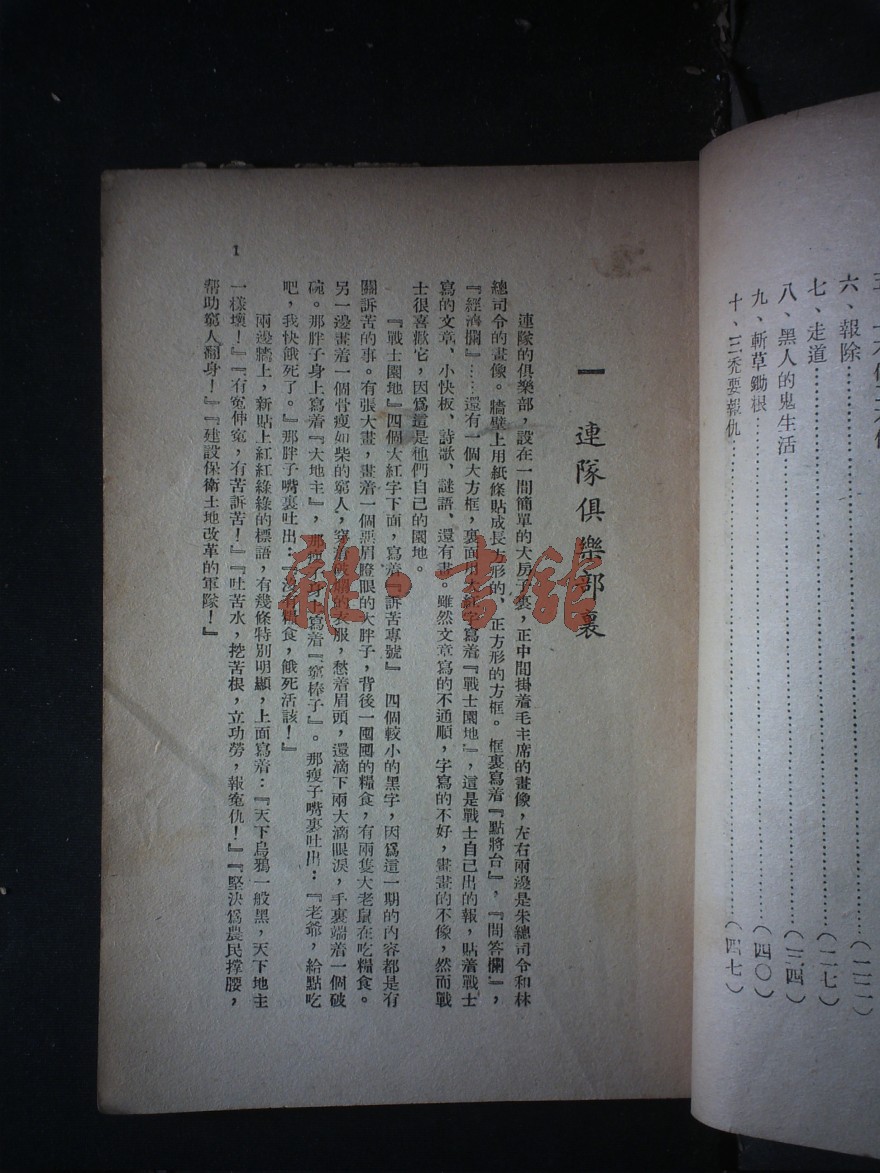 六、報除
七、走道……(二七)
八、黑人的鬼生活……(三四)
九、斬草鋤根……(四〇)
十、三禿要報仇……(四七)
一 連隊俱樂部裏
連隊的俱樂部，設在一間簡單的大房子裏，正中間掛着毛主席的畫像，左右兩邊是朱總司令和林
總司令的畫像。牆壁上用紙條貼成長方形的、正方形的方框。框裏寫着『點將台』，『問答欄』，
『經濟欄』……還有一個大方框，裏面用大紅字寫着『戰士園地』，這是戰士自己出的報，貼着戰士
寫的文章、小快板、詩歌、謎語、還有畫。雖然文章寫的不通順，字寫的不好，畫畫的不像，然而戰
士很喜歡它，因爲這是他們自己的園地。
『戰士園地』四個大紅字下面，寫着『訴苦專號』四個較小的黑字，因爲這一期的內容都是有
關訴苦的事。有張大畫，畫着一個惡眉瞪眼的大胖子，背後一囤囤的糧食，有兩隻大老鼠在吃糧食。
另一邊畫着一個骨瘦如柴的窮人，穿着破爛的衣服，愁着眉頭，還滴下兩大滴眼淚，手裏端着一個破
碗。那胖子身上寫着『大地主』，那瘦子身上寫着『窮棒子』。那瘦子嘴裏吐出：『老爺，給點吃
吧，我快餓死了。』那胖子嘴裏吐出：『沒有糧食，餓死活該！』
兩邊牆上，新貼上紅紅綠綠的標語，有幾條特別明顯，上面寫着：『天下烏鴉一般黑，天下地主
一樣壞！』『有冤伸冤，有苦訴苦！』『吐苦水，挖苦根，立功勞，報冤仇！』『堅決爲農民撑腰，
帮助窮人翻身！』『建設保衛土地改革的軍隊！』
1
雜·書館